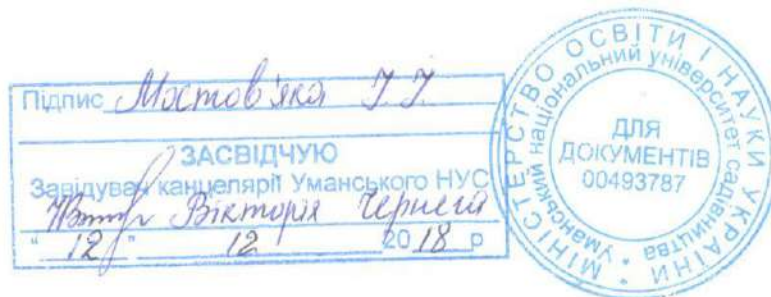 Підпис Мостов'яка І.І.
ЗАСВІДЧУЮ
Завідувач канцелярії Уманського НУС
Вікторія Чернега
"12" 12 2018 р
МІНІСТЕРСТВО ОСВІТИ І НАУКИ УКРАЇНИ *
Уманський національний університет садівництва *
ДЛЯ
ДОКУМЕНТІВ
00493787